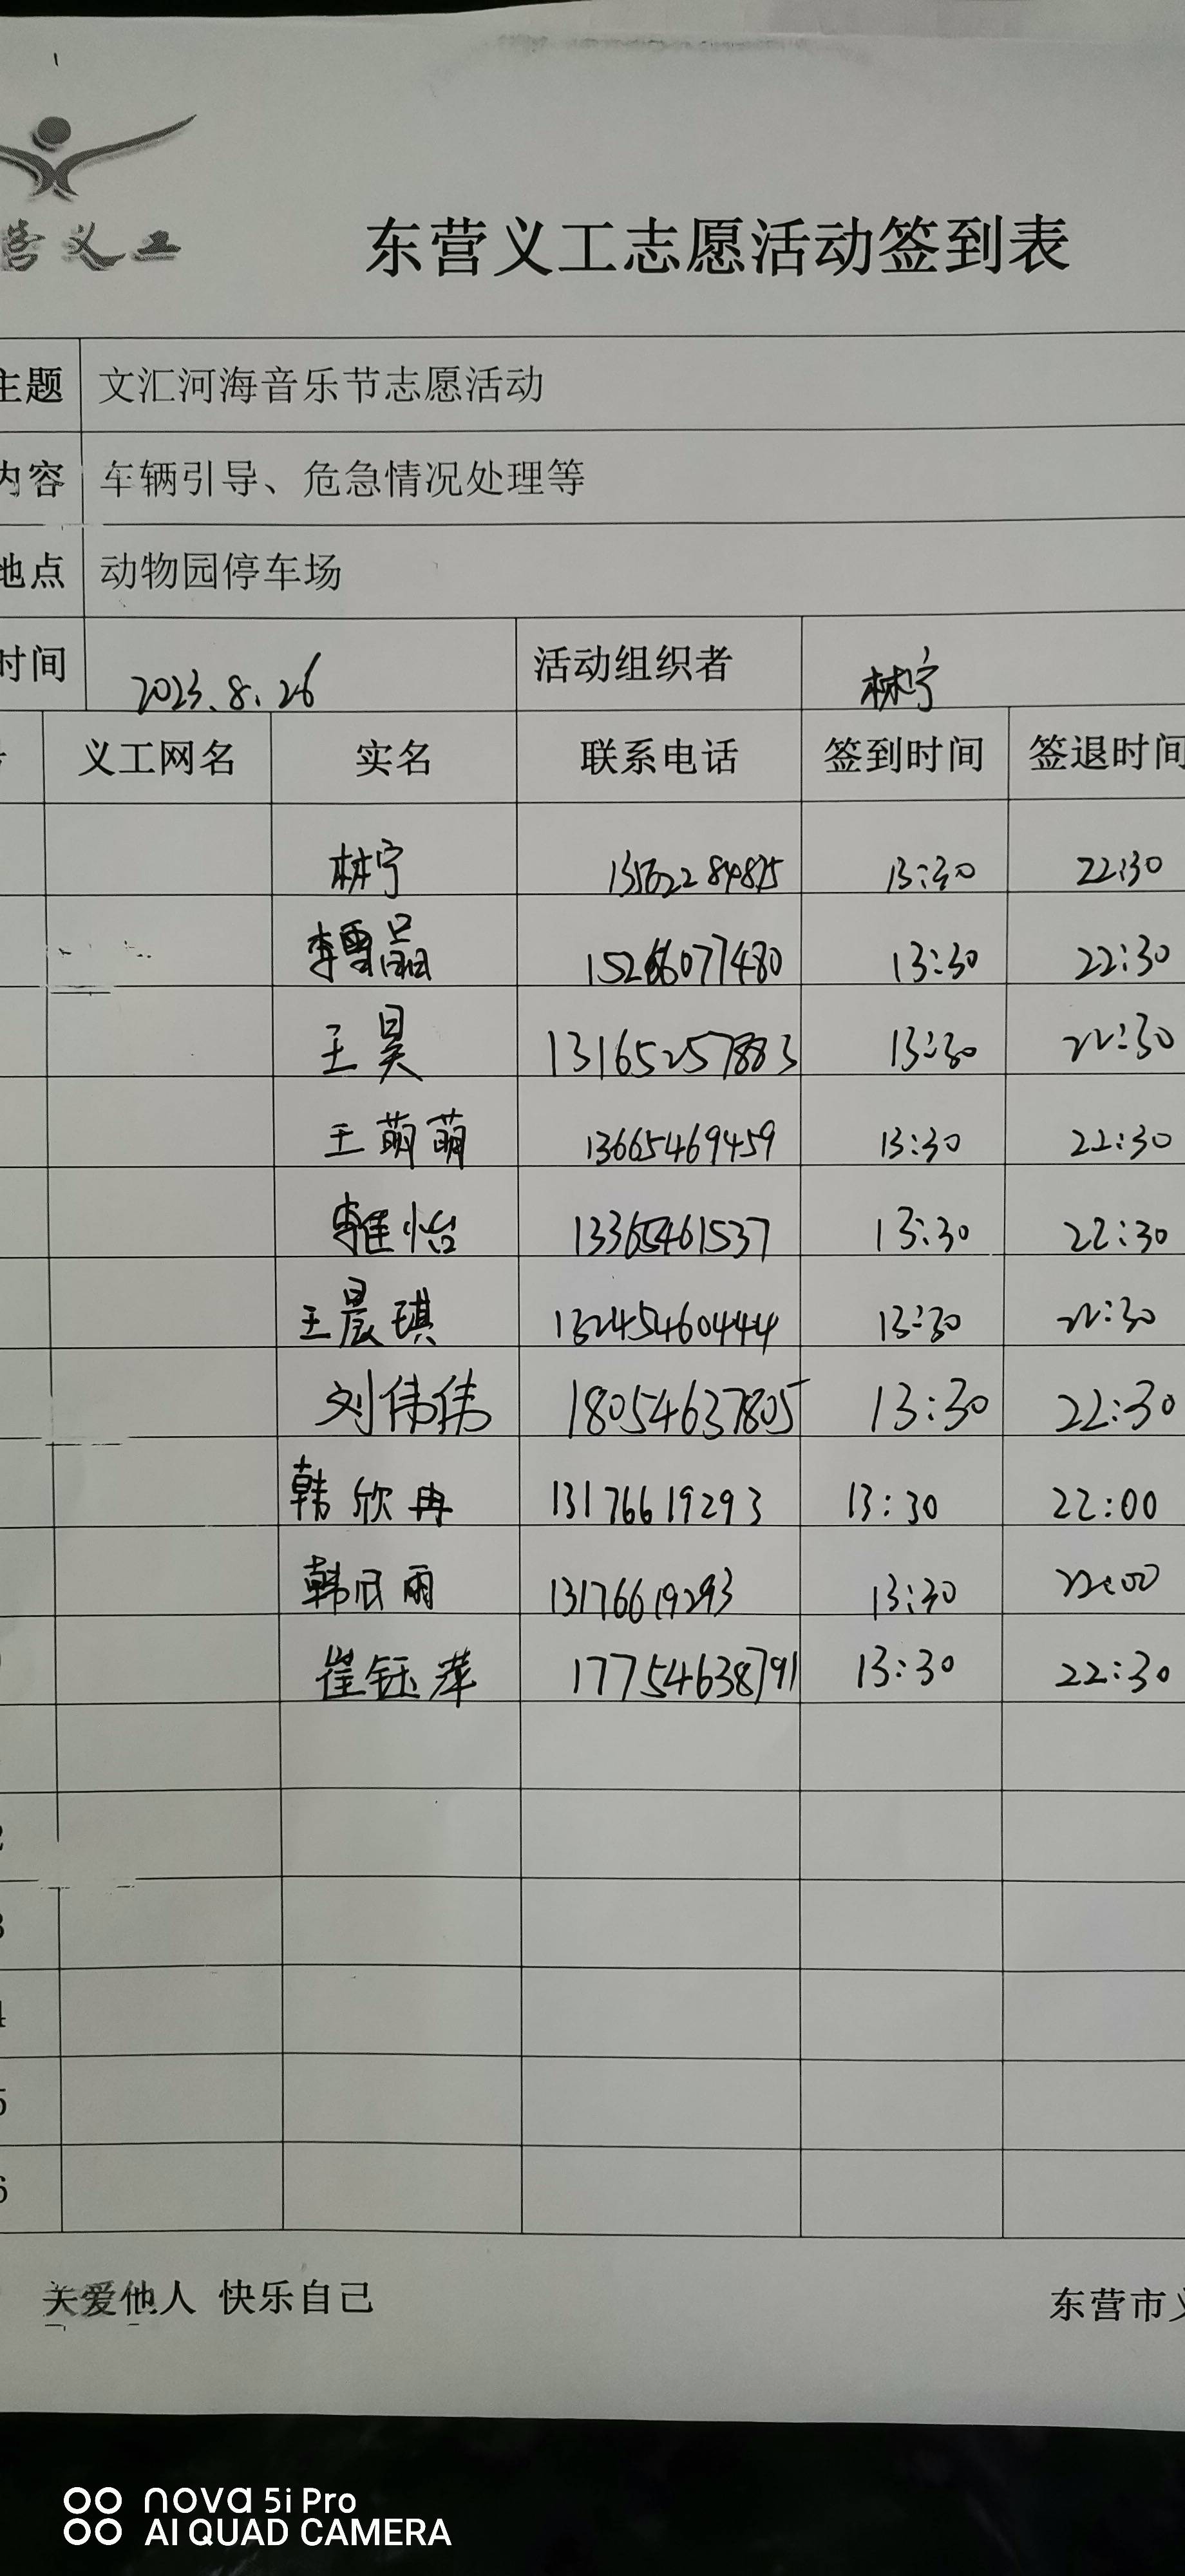 营义工
东营义工志愿活动签到表
主题 文汇河海音乐节志愿活动
内容 车辆引导、危急情况处理等
地点 动物园停车场
时间 2023.8.26 活动组织者 林宁
义工网名 实名 联系电话 签到时间 签退时间
林宁 13:30 22:30
李雪晶 15266077480 13:30 22:30
王昊 13165257883 13:30 22:30
王萌萌 13665469459 13:30 22:30
李佳怡 13365461537 13:30 22:30
王晨琪 13245460444 13:30 22:30
刘伟伟 18054637805 13:30 22:30
韩欣冉 13176619293 13:30 22:00
韩辰雨 13176619293 13:30 22:00
崔钰萍 17754638791 13:30 22:30
2
3
4
5
6
关爱他人 快乐自己
东营市义
nova 5i Pro
AI QUAD CAMERA